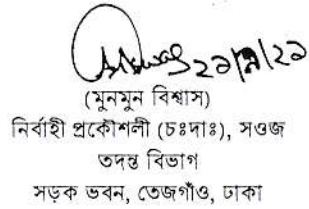 ২১/৯/২১
(মুনমুন বিশ্বাস)
নির্বাহী প্রকৌশলী (চঃদাঃ), সওজ
তদন্ত বিভাগ
সড়ক ভবন, তেজগাঁও, ঢাকা